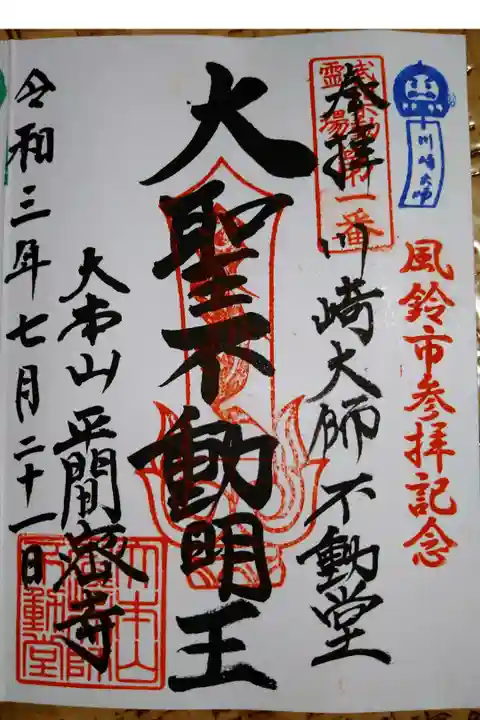 川崎大師
風鈴市参拝記念
奉拝
霊場第一番
川崎大師不動堂
大聖不動明王
大本山平間寺
令和三年七月二十一日
大本山
不動堂